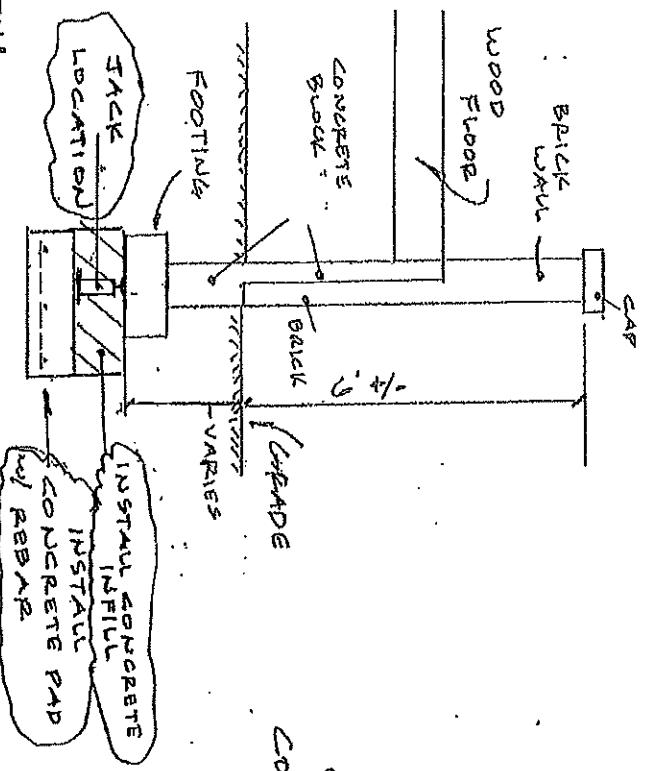 CAP
BRICK
WALL
WOOD
FLOOR
CONCRETE
BLOCK
BRICK
6' +/-
GRADE
VARIES
FOOTING
JACK
LOCATION
INSTALL CONCRETE
INFILL
INSTALL
CONCRETE PAD
W/ REBAR